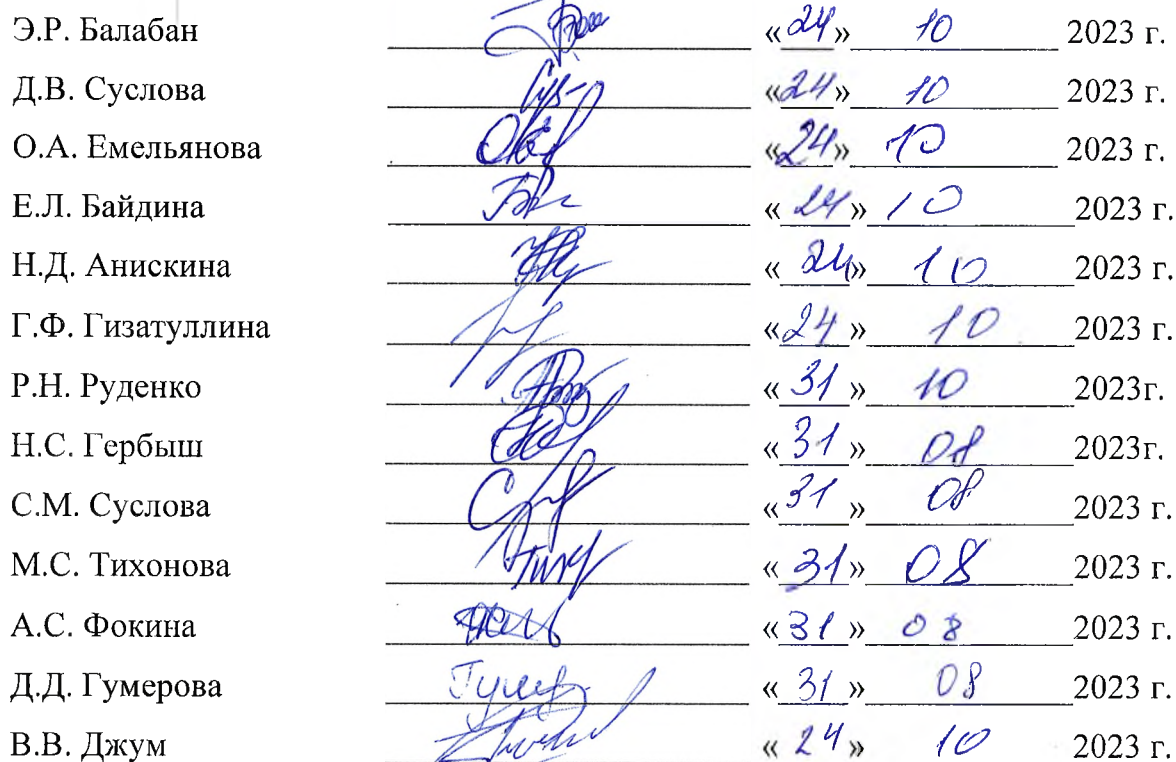 Э.Р. Балабан «24» 10 2023 г.
Д.В. Суслова «24» 10 2023 г.
О.А. Емельянова «24» 10 2023 г.
Е.Л. Байдина «24» 10 2023 г.
Н.Д. Анискина «24» 10 2023 г.
Г.Ф. Гизатуллина «24» 10 2023 г.
Р.Н. Руденко «31» 10 2023г.
Н.С. Гербыш «31» 08 2023г.
С.М. Суслова «31» 08 2023 г.
М.С. Тихонова «31» 08 2023 г.
А.С. Фокина «31» 08 2023 г.
Д.Д. Гумерова «31» 08 2023 г.
В.В. Джум «24» 10 2023 г.